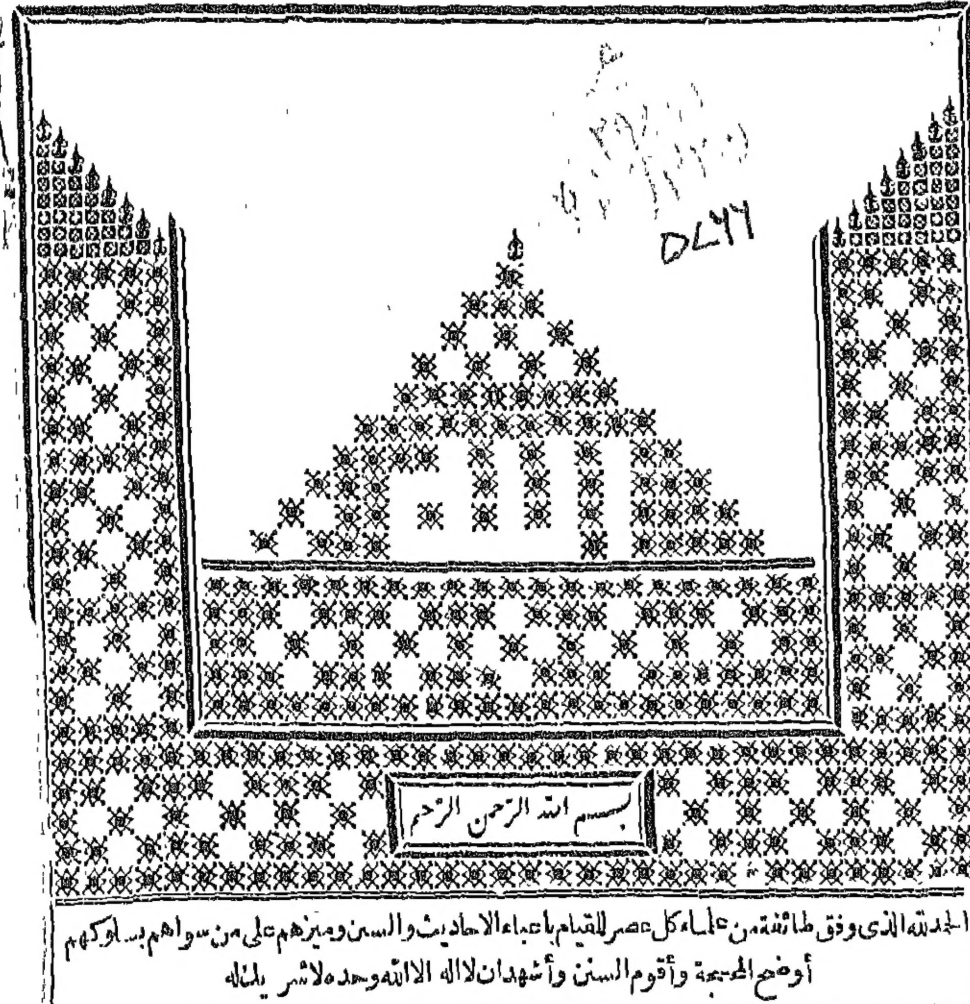 بسم الله الرّحمن الرّحيم
الحمد لله الذى وفق طائفة من علماء كل عصر للقيام باعباء الاحاديث والسنن وميزهم على من سواهم بسلوكهم
أوضح المحجة وأقوم السنن وأشهد ان لااله الاالله وحده لاشريك له